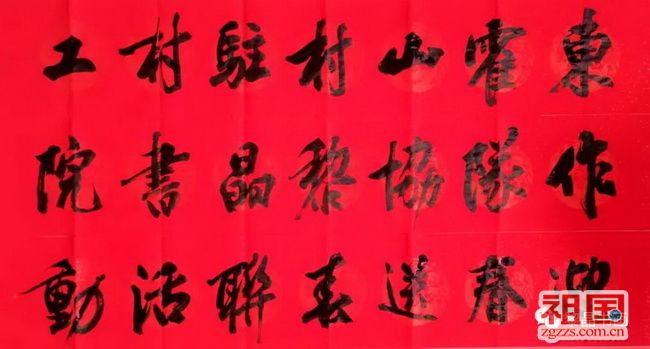 東霍山村駐村工
作隊協黎晶書院
春送春聯活動
祖国
zgzzs.com.cn